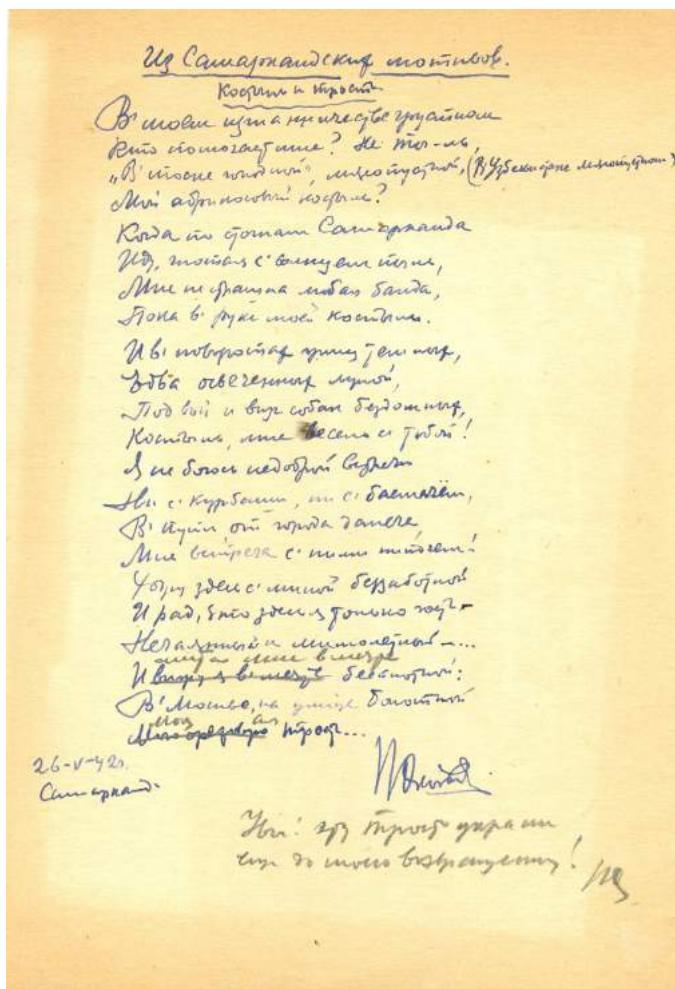 Из Самаркандских мотивов.
Костыль и трость
В моем изгнанничестве грустном
Кто помогает мне? Не ты-ль,
"В тоске , (В Узбекистане )
Мой абрикосовый костыль?
Когда по стогнам Самарканда
Иду, глотая с солнцем пыль,
Мне не страшна любая банда,
Пока в руке моей костыль.
И в поворотах улиц темных,
Едва освеченных луной,
Под вой и визг собак бездомных,
Костыль, мне весело с тобой!
Я не боюсь недоброй встречи
Ни с курбаши, ни с басмачём,
В пути от города далече,
Мне встреча с ними нипочем!
Живу здесь с миной беззаботной
И рад, что здесь я только гость
Нечаянный и мимолетный —...
мне
И бесплотной:
В Москве, на улице Болотной
Моя ая
трость...
26-V-42г.
Самарканд.
Увы! эту трость украли
еще до моего возвращения!